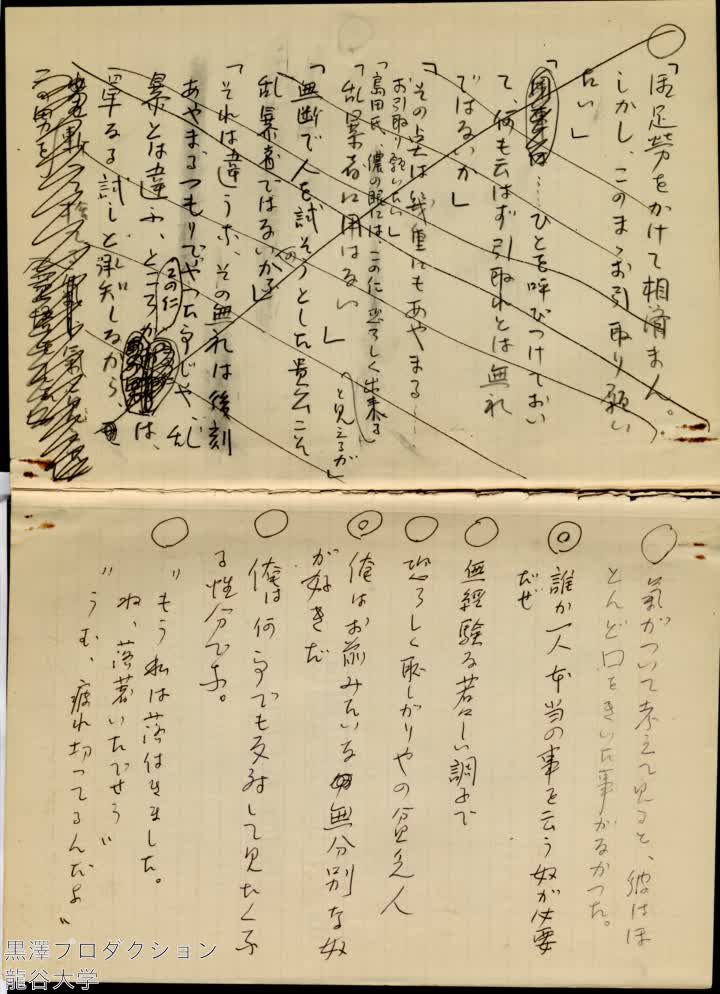 「御足労をかけて相済まん。
しかし、このまゝお引取り願い
たい」
「……ひとを呼びつけておい
て、何も云はず引取れとは無礼
ではないか」
「その点は幾重にもあやまる……
お引取り願いたい」
「島田氏、儂の眼には、この仁恐ろしく出来る
と見えるが」
「乱暴者に用はない」
「無断で人を試そうとした貴公こそ
乱暴者ではないか」
「それは違うぞ、その無礼は後刻
あやまるつもりでやつた事じや、乱
暴とは違ふ、ところがこの仁は、
単なる試しと承知しながら、
○ 気がついて考えて見ると、彼はほ
とんど口をきいた事がなかつた。
◎ 誰か一人本当の事を云う奴が必要
だぜ
○ 無経験な若々しい調子で
○ 恐ろしく恥しがりやの貧乏人
◎ 俺はお前みたいな無分別な奴
が好きだ
○ 俺は何事でも反対して見たくな
る性分でな。
○ "もう私は落付きました。
ね、落着いたでせう"
"うむ、疲れ切つてるんだよ"
黒澤プロダクション
龍谷大学